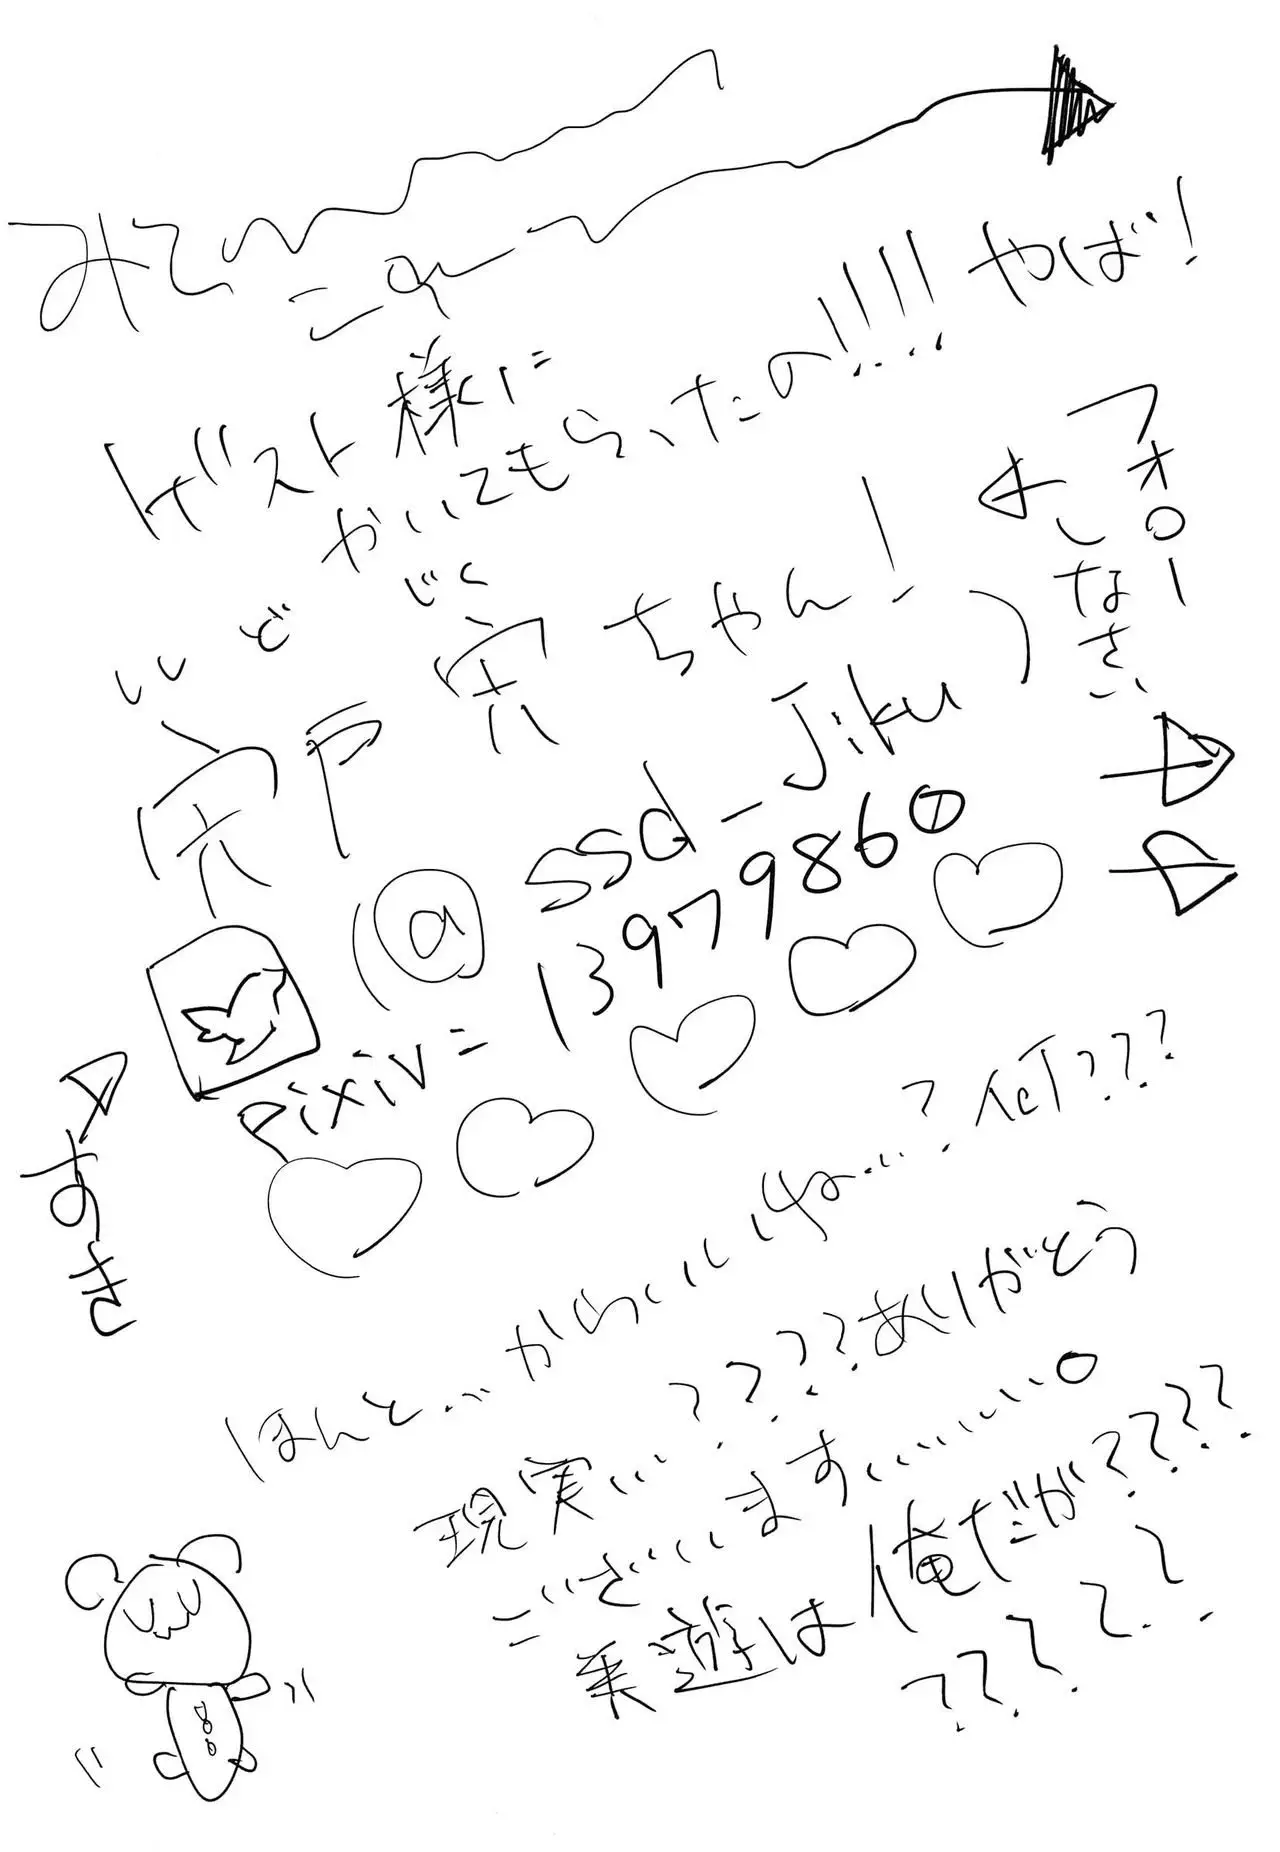 みて
ゲスト様に
かいてもらったの!!!! やば!
ししど じく
宍戸 宍ちゃん!
フォロー
しなさい
(@ssd_Jiku)
pixiv=13979860
すき
ほんと…かわいいね…?何???
現実…????ありがとう
ございます………。
乗遊は俺だが????
?????